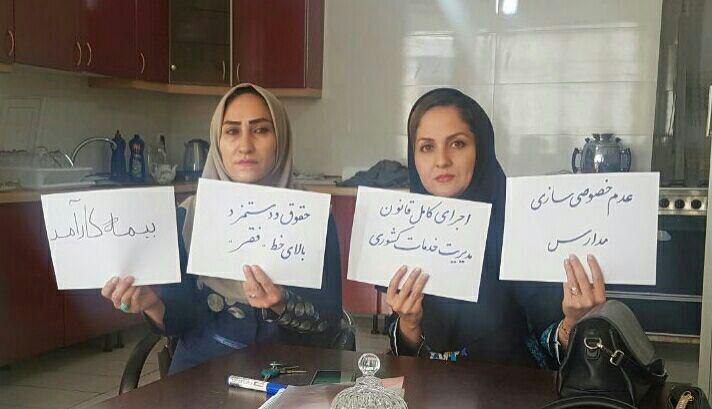 عدم خصوصی سازی
مدارس
اجرای کامل قانون
مدیریت خدمات کشوری
حقوق و دستمزد
بالای خط "فقر"
بیمه کارآمد